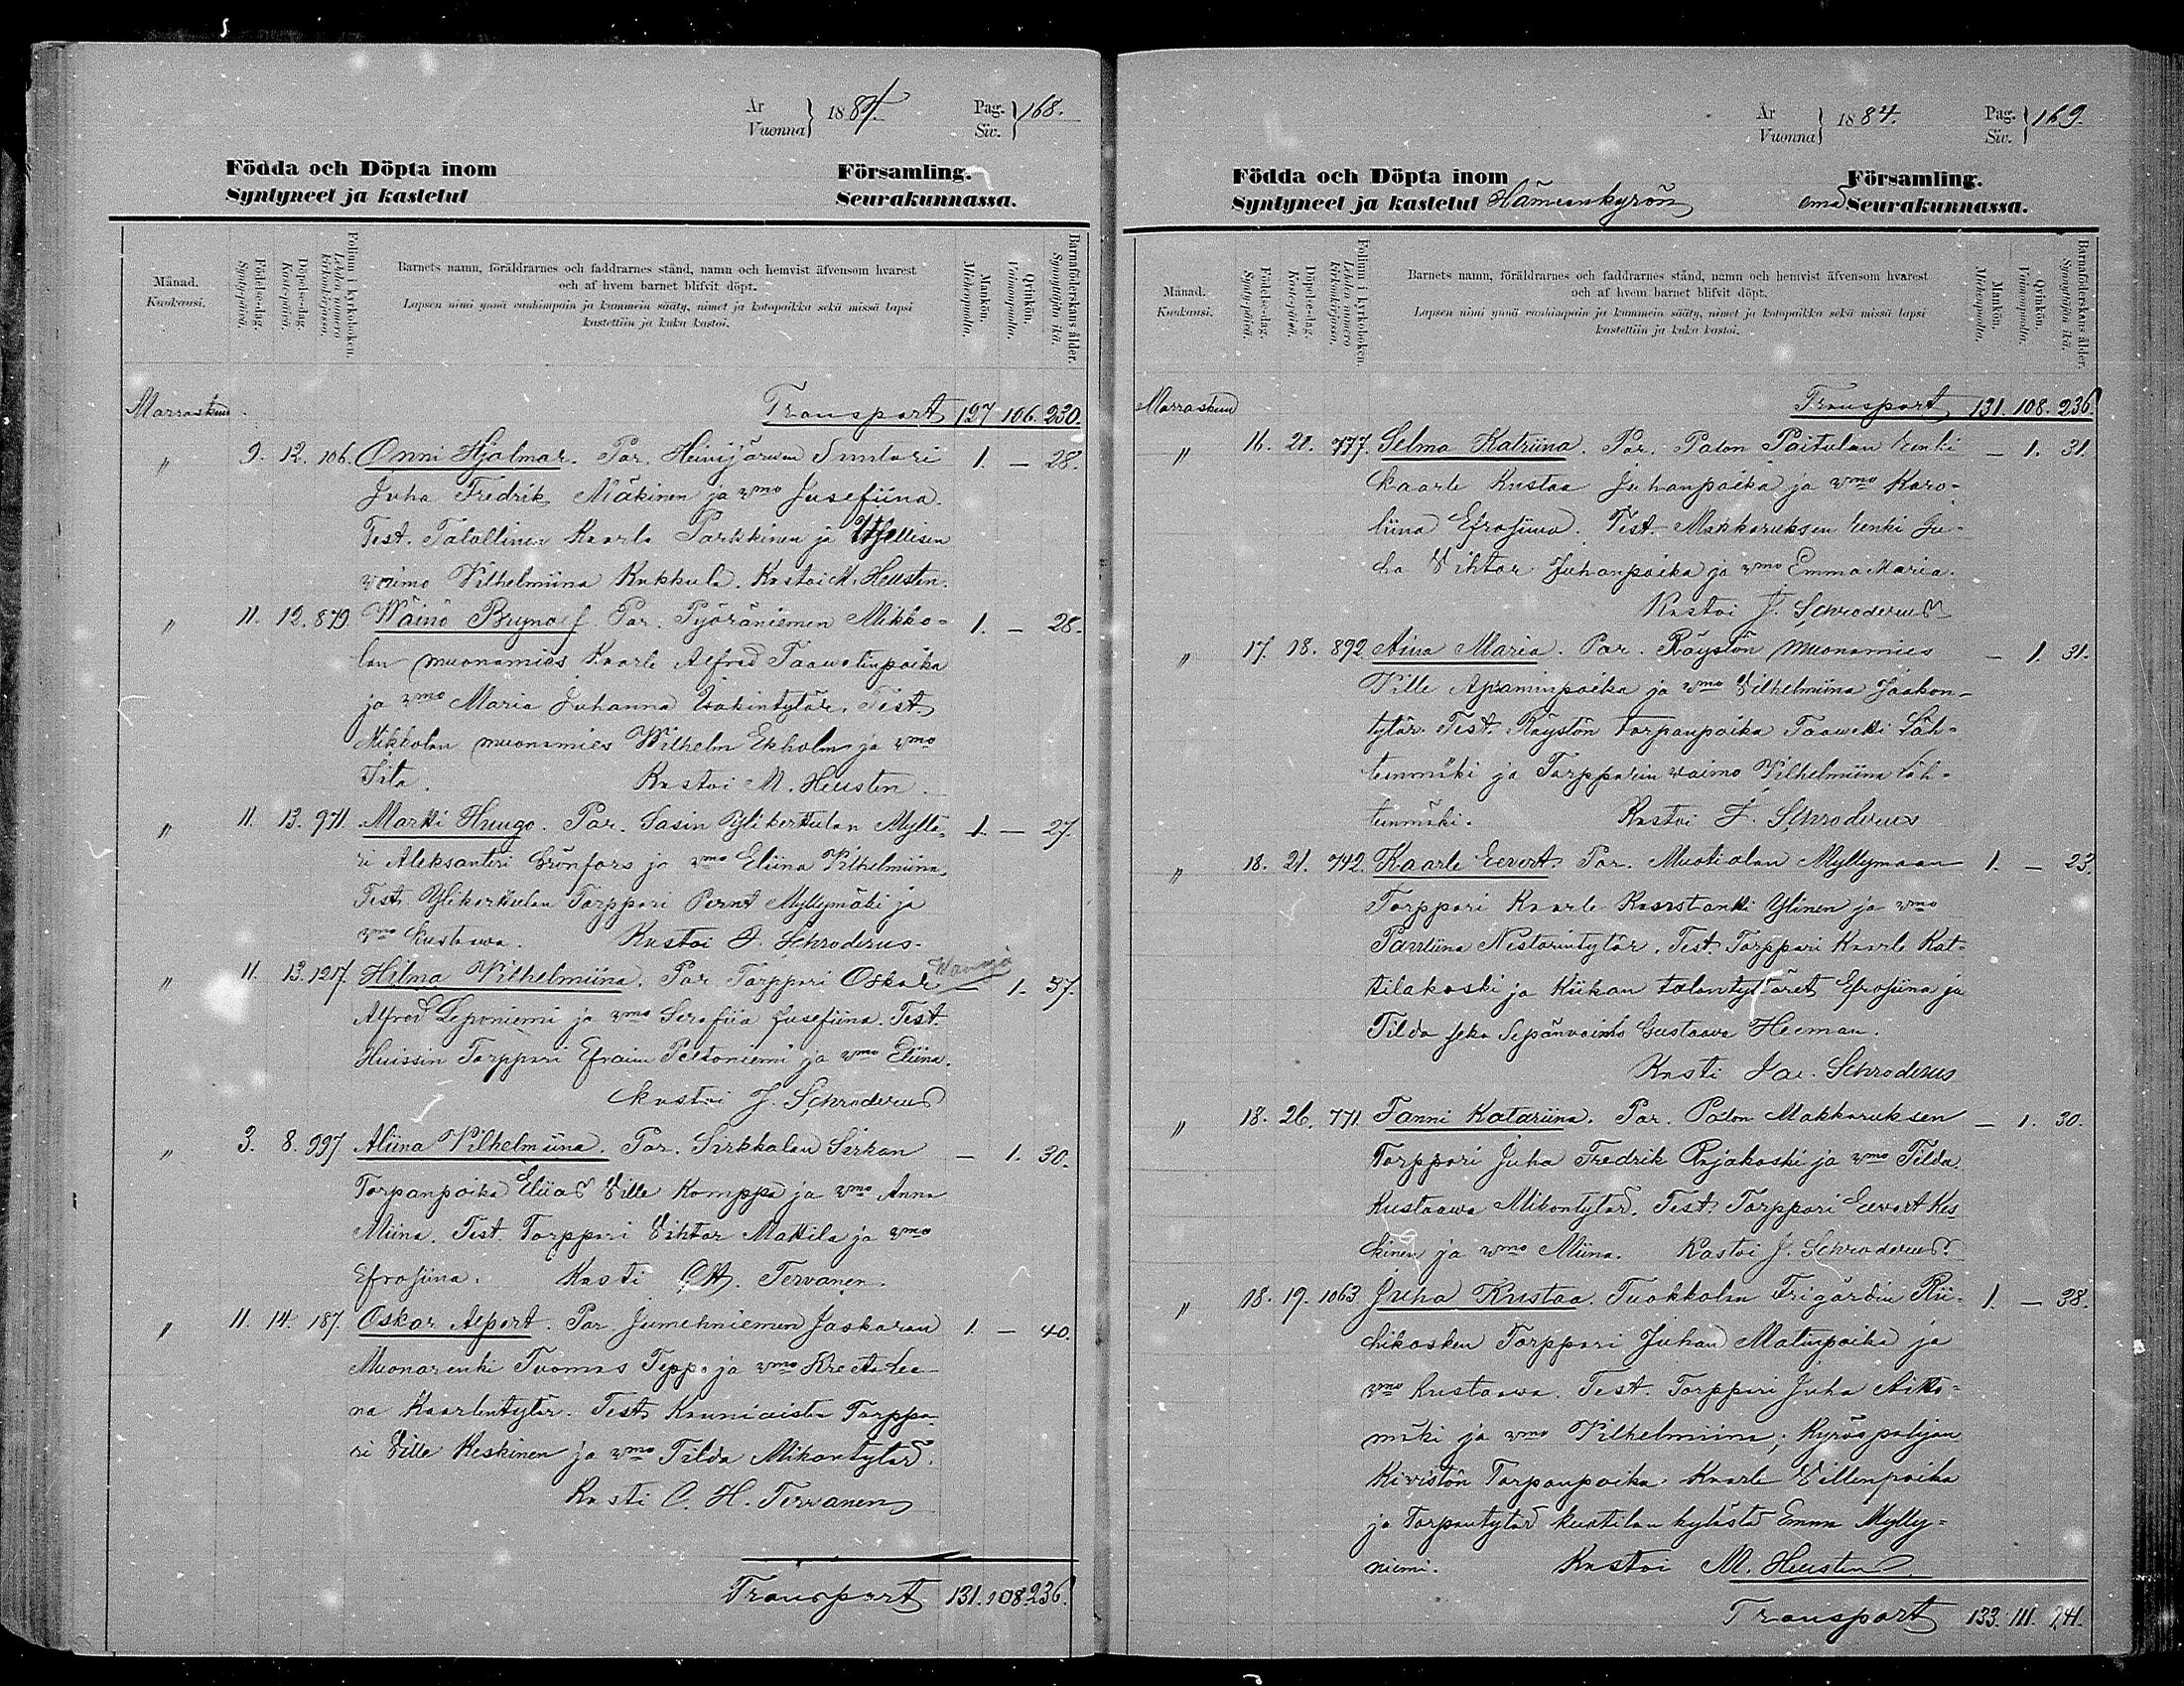 År
Vuonna } 1884. Pag.
Siv. } 168.
Födda och Döpta inom Församling.
Syntyneet ja kastetut Seurakunnassa.
Månad.
Kuukausi.
Födelse-dag.
Syntypäivä.
Döpelse-dag.
Kastepäivä.
Folium i kyrkoboken.
Lehden numero kirkonkirjassa.
Barnets namn, föräldrarnes och faddrarnes stånd, namn och hemvist äfvensom hvarest
och af hvem barnet blifvit döpt.
Lapsen nimi ynnä vanhimpain ja kummein sääty, nimet ja kotopaikka sekä missä lapsi
kastettiin ja kuka kastoi.
Mankön.
Miehenpuolia.
Qvinkön.
Vaimonpuolia.
Barnaföderskans ålder.
Synnyttäjän ikä.
Marraskuu Transport 127 106. 230.
" 9. 12. 106. Onni Hjalmar. Par. Heinijärven Suutari 1. — 28.
Juha Fredrik Mäkinen ja vmo Jusefiina.
Test. Talollinen Kaarlo Parkkinen ja Itsellisen
vaimo Vilhelmiina Kukkula. Kastoi M. Heusten.
" 11. 12. 879. Wäinö Brynolf. Par. Pyöräniemen Mikko- 1. — 28.
lan muonamies Kaarle Alfred Taavetinpoika
ja vmo Maria Juhanna Isakintytär. Test.
Mikkolan muonamies Wilhelm Ekholm ja vmo
Fita. Kastoi M. Heusten.
" 11. 13. 971. Martti Huugo. Par. Sasin Ylikerttulan Myllä- 1. — 27.
ri Aleksanteri Grönfors ja vmo Eliina Vilhelmiina.
Test. Ylikerttulan Torppari Pernt Myllymäki ja
vmo Kustaava. Kastoi J. Schroderus.
Wanaja
" 11. 13. 1217. Hilma Vilhelmiina. Par. Torppari Oskar — 1. 37.
Alfred Leponiemi ja vmo Serafiia Jusefiina. Test.
Huissin Torppari Efraim Peltoniemi ja vmo Eliina.
Kastoi J. Schroderus
" 3. 8. 997 Aliina Vilhelmiina. Par. Sirkkalan Sirkan — 1. 30.
Torpanpoika Elias Ville Komppa ja vmo Anna
Miina. Test. Torppari Vihtor Mattila ja vmo
Efrosiina. Kasti C. H. Tervanen.
" 11. 14. 187. Oskar Alpert. Par Jumehniemen Jaskaran 1. — 40.
Muonarenki Tuomas Teppo ja vmo Kreeta Lee-
na Kaarlentytär. Test. Kauniaisten Torppa-
ri Ville Keskinen ja vmo Tilda Mikontytär.
Kasti C. H. Tervanen
Transport 131. 108. 236.
År
Vuonna } 1884. Pag.
Siv. } 169.
Födda och Döpta inom Församling.
Syntyneet ja kastetut Hämeenkyrön emä Seurakunnassa.
Månad.
Kuukausi.
Födelse-dag.
Syntypäivä.
Döpelse-dag.
Kastepäivä.
Folium i kyrkoboken.
Lehden numero kirkonkirjassa.
Barnets namn, föräldrarnes och faddrarnes stånd, namn och hemvist äfvensom hvarest
och af hvem barnet blifvit döpt.
Lapsen nimi ynnä vanhimpain ja kummein sääty, nimet ja kotopaikka sekä missä lapsi
kastettiin ja kuka kastoi.
Mankön.
Miehenpuolia.
Qvinkön.
Vaimonpuolia.
Barnaföderskans ålder.
Synnyttäjän ikä.
Marraskuu Transport 131. 108. 236.
" 16. 21. 777. Selma Katriina. Par. Palon Paitulan Renki — 1. 31.
Kaarle Kustaa Juhanpoika ja vmo Karo-
liina Efrosiina. Test. Makkaruksen Renki Ju-
ha Vihtor Juhanpoika ja vmo Emma Maria.
Kastoi J. Schroderus
" 17. 18. 892. Aina Maria. Par. Räystön muonamies — 1. 31.
Ville Apraminpoika ja vmo Vilhelmiina Jaakon-
tytär. Test. Räystön torpanpoika Taavetti Läh-
teenmäki ja Torpparin vaimo Vilhelmiina Läh-
teenmäki. Kastoi J. Schroderus
" 18. 21. 742. Kaarle Eevert. Par. Muotialan Myllymaan 1. — 23.
Torppari Kaarle Konstantti Ylinen ja vmo
Pauliina Nestorintytär. Test. Torppari Kaarle Kat-
tilakoski ja Kiikan talontyttäret Efrosiina ja
Tilda seka Sepänvaimo Gustaava Heeman.
Kasti Ja. Schroderus
" 18. 26. 771. Fanni Katariina. Par. Palon Makkaruksen — 1. 30.
Torppari Juha Fredrik Rajakoski ja vmo Tilda
Kustaava Mikontytär. Test. Torppari Eevert Kes
kinen ja vmo Miina. Kastoi J. Schroderus.
" 18. 19. 1063 Juha Kustaa. Tuokkolan Frigårdin Rii- 1. — 38.
hikosken Torppari Juhan Matinpoika ja
vmo Kustaava. Test. Torppari Juha Aitto-
mäki ja vmo Vilhelmiina; Kyröspohjan
Kiviston Torpanpoika Kaarle Villenpoika
ja Torpantytär Kuotilan kylästä Emma Mylly-
niemi. Kastoi M. Heusten
Transport 133. 111. 241.